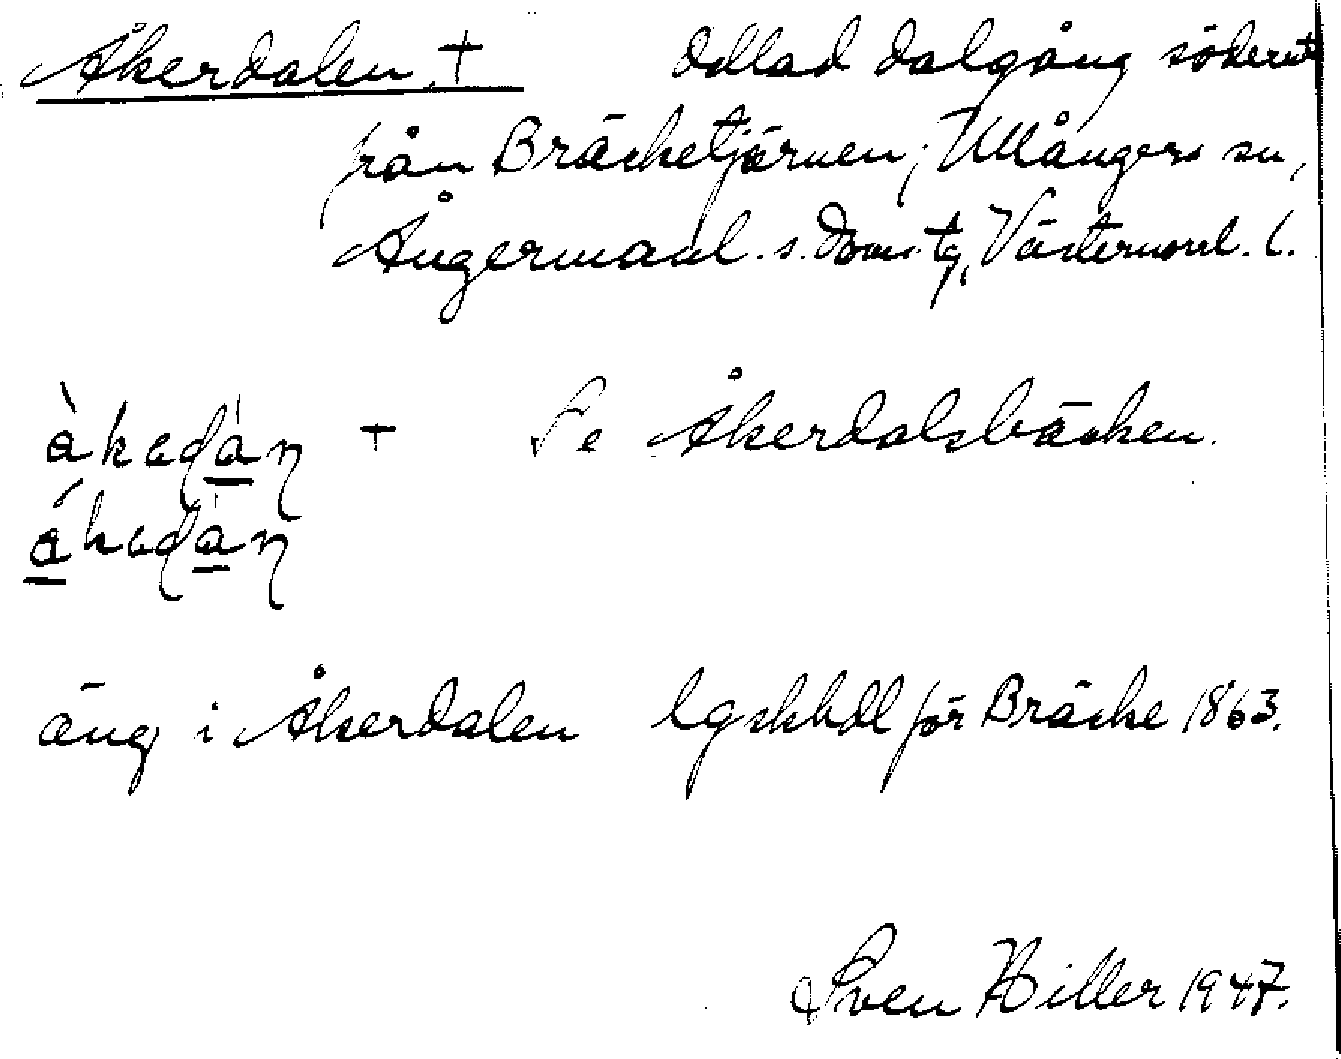 Åkerdalen + Odlad dalgång söderut
från Bräcketjärnen, Ullångers sn,
Ångermanl. s. doms. tg, Västernorrl. l.
+ Se Åkerdalsbäcken.
äng i Åkerdalen lgskhdl för Bräcke 1863.
Sven Hiller 1947.